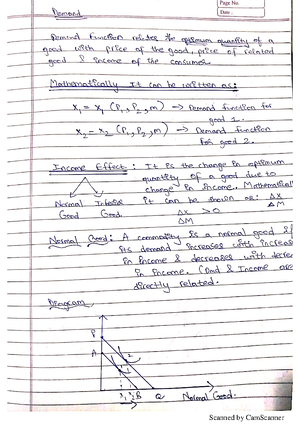 Page No.
Date
Demand
Demand Function relates the optimum quantity of a
good with price of the good, price of related
good & income of the consumer.
Mathematically It can be written as:
x₁ = x₁ (P₁, P₂, m) → Demand function for
good 1.
x₂ = x₂ (P₁, P₂, m) → Demand function
for good 2.
Income Effect: It is the change in optimum
quantity of a good due to
change in Income. Mathematical
Normal Inferior it can be shown as: Δx
Good Good. ΔM
Δx > 0
ΔM
Normal Good: A commodity is a normal good if
its demand increases with increase
in Income & decreases with decre
in Income. (Dmd & Income are
directly related.
Diagram
P
A
B Q Normal Good.
Scanned by CamScanner